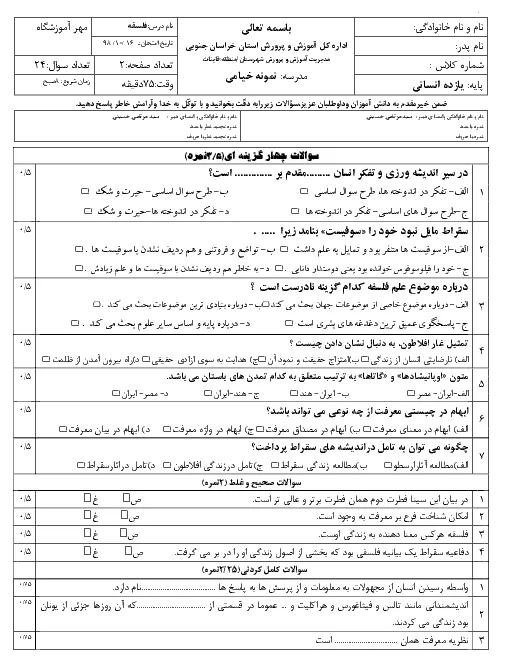 باسمه تعالی
نام و نام خانوادگی:
نام پدر:
شماره کلاس :
پایه: یازده انسانی
اداره کل آموزش و پرورش استان خراسان جنوبی
مدیریت آموزش و پرورش شهرستان /منطقه:قاینات
مدرسه: نمونه خیامی
نام درس:فلسفه
تاریخ امتحان: ۱۶ /۱۰/ ۹۸
تعداد صفحه:۲
وقت:۷۵دقیقه
مهر آموزشگاه
تعداد سوال:۲۴
زمان شروع: ۸صبح
ضمن خیرمقدم به دانش آموزان وداوطلبان عزیز،سؤالات زیررابه دقّت بخوانید و با توکّل به خدا وآرامش خاطر پاسخ دهید.
نام و نام خانوادگی و امضای دبیر : سیدمرتضی حسینی
نمره با عدد
نمره با حروف
نام و نام خانوادگی و امضای دبیر : سیدمرتضی حسینی
نمره تجدید نظر با عدد
نمره تجدید نظر با حروف
سوالات چهار گزینه ای(۳/۵نمره)
۱ در سیر اندیشه ورزی و تفکر انسان .........مقدم بر ............. است؟ ۰/۵
الف- تفکر در اندوخته ها، طرح سوال اساسی □ ب- طرح سوال اساسی- حیرت و شک □
ج-طرح سوال های اساسی- تفکر در اندوخته ها □ د- تفکر در اندوخته ها-حیرت و شک □
۲ سقراط مایل نبود خود را «سوفیست» بنامد زیرا ..... . ۰/۵
الف-از سوفیست ها متنفر بود و تمایل به علم داشت □ ب- تواضع و فروتنی و هم ردیف نشدن با سوفیست ها . □
ج- خود را فیلوسوفوس خوانده بود یعنی دوستدار دانایی . □ د- به خاطر هم ردیف نشدن با سوفیست ها و علم زیادش . □
۳ درباره موضوع علم فلسفه کدام گزینه نادرست است ؟ ۰/۵
الف- درباره موضوع خاصی از موضوعات جهان بحث می کند□ ب- درباره بنیادی ترین موضوعات بحث می کند . □
ج- پاسخگوی عمیق ترین دغدغه های بشری است □ د-درباره پایه و اساس سایر علوم بحث می کند . □
۴ تمثیل غار افلاطون، به دنبال نشان دادن چیست ؟ ۰/۵
الف) نارضایتی انسان از زندگی □ ب)امتزاج حقیقت و نمود آن□ ج) هدایت به سوی آزادی حقیقی□ د)راه بیرون آمدن از ظلمت □
۵ متون «اوپانیشادها» و «گاتاها» به ترتیب متعلق به کدام تمدن های باستان می باشد. ۰/۵
الف-ایران- مصر □ ب- ایران- هند □ ج- هند-ایران□ د- مصر- ایران□
۶ ابهام در چیستی معرفت از چه نوعی می تواند باشد؟ ۰/۵
الف) ابهام در معنای معرفت □ ب) ابهام در مصداق معرفت□ ج) ابهام در واژه معرفت□ د) ابهام در بیان معرفت □
۷ چگونه می توان به تامل دراندیشه های سقراط پرداخت؟ ۰/۵
الف)مطالعه آثارارسطو □ ب)مطالعه زندگی سقراط □ ج)تامل درزندگی افلاطون □ د)تامل درآثارسقراط□
سوالات صحیح و غلط (۲نمره)
۱ در بیان ابن سینا فطرت دوم همان فطرت برتر و عالی تر است. ص□ غ□ ۰/۵
۲ امکان شناخت فرع بر معرفت به وجود است. ص□ غ□ ۰/۵
۳ فلسفه هرکس معنا دهنده به زندگی اوست. ص□ غ□ ۰/۵
۴ دفاعیه سقراط یک بیانیه فلسفی بود که بخشی از اصول زندگی او را در بر می گرفت. ص□ غ□ ۰/۵
سوالات کامل کردنی(۲/۲۵نمره)
۱ واسطه رسیدن انسان از مجهولات به معلومات و از پرسش ها به پاسخ ها ..............................نام دارد. ۰/۷۵
۲ اندیشمندانی مانند تالس و فیثاغورس و هراکلیت و .. عموما در قسمتی از ..........................که آن روزها جزئی از یونان ۰/۷۵
بود زندگی می کردند.
۳ نظریه معرفت همان .......................... است ۰/۷۵